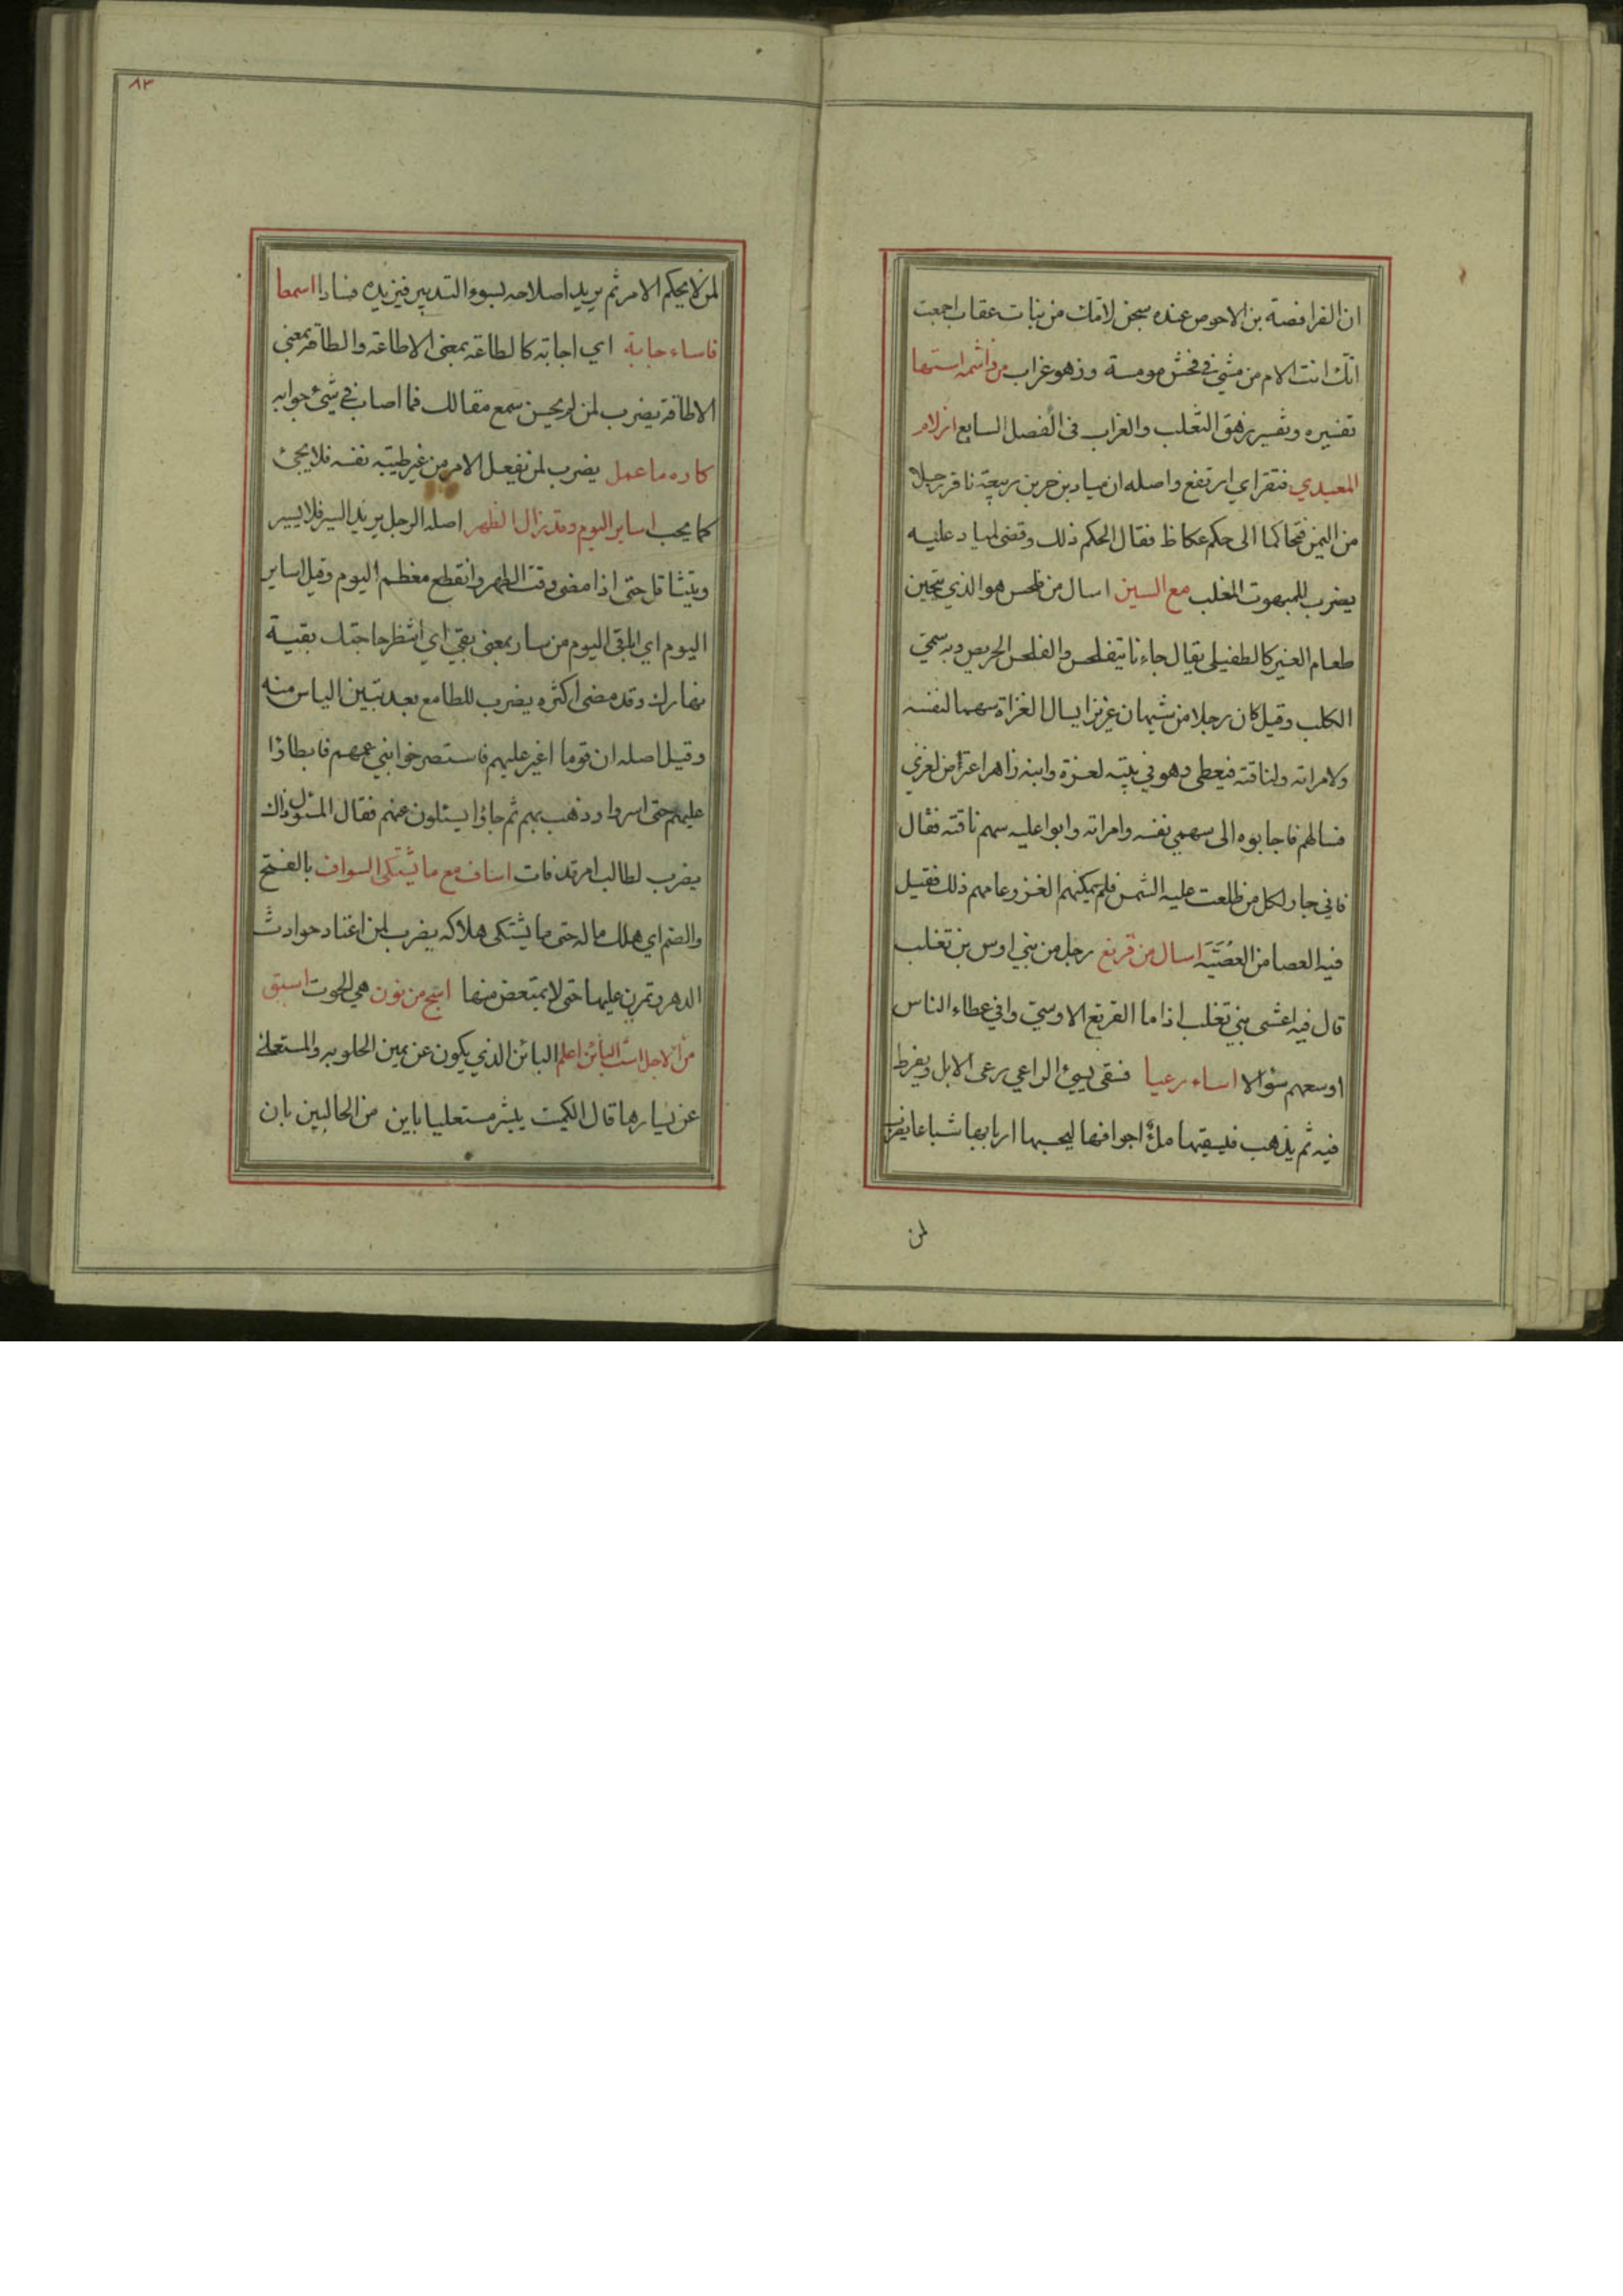 ان الفرافصة بن الاحوص عنده سجن لامك من بنات عقاب اجمعت
انك انت الام من مشى في فحش مومسة وزهو غراب من واشمه استها
تفسيره وتفسير زهق الثعلب والغراب فى الفصل السابع انزلام
المعيدي فنقر اي ارتفع واصله ان مياد بن حر بن ربيعة نافر رجلا
من اليمن فتحاكما الى حكم عكاظ فقال الحكم ذلك وقضى لمياد عليه
يضرب للمبهوت المغلب مع السين اسال من فلحس هو الذي يتحين
طعام الغير كالطفيلى يقال جاءنا يتفلحس والفلحس الحريص وبه سمي
الكلب وقيل كان رجلا من شيبان عزيزا يسال الغزاة سهما لنفسه
ولامراته ولناقته فيعطى وهو في بيته لعزة وابنه زاهر اعترض لغزي
فسالهم فاجابوه الى سهمي نفسه وامراته وابوا عليه سهم ناقته فقال
فاني جار لكل من طلعت عليه الشمس فلم يمكنهم الغزو عامهم ذلك فقيل
فيه العصا من العصية اسال من قرثع رجل من بني اوس بن تغلب
قال فيه اعشى بني تغلب اذا ما القرثع الاوسي وافي عطاء الناس
اوسعهم سؤالا اساء رعيا فسقى يسيئ الراعي رعى الابل ويفرط
فيه ثم يذهب فيسقيها ملأ اجوافها ليحسبها اربابها شباعا يضرب
لمن
٨٣
لمن لا يحكم الامر ثم يريد اصلاحه لسوء التدبير فيزيده فسادا اسمعا
فاساء جابة اي اجابته كالطاعة بمعنى الاطاعة والطاقة بمعنى
الاطاقة يضرب لمن لم يحسن سمع مقالك فما اصاب في شيئ جوابه
كاره ما عمل يضرب لمن يفعل الامر من غير طيبة نفسه فلا يجئ
كما يحب اساير اليوم وقد زال الظهر اصله الرجل يريد السير فلا يسير
ويتثاقل حتى اذا مضى وقت الظهر وانقطع معظم اليوم وقيل اساير
اليوم اي اباقى اليوم من سار بمعنى بقي اي انتظر حاجتك بقية
نهارك وقد مضى اكثره يضرب للطامع بعد تبين الياس منه
وقيل اصله ان قوما اغير عليهم فاستصرخوا بني عمهم فابطاؤا
عليهم حتى اسروا وذهب بهم ثم جاؤا يسئلون عنهم فقال المسئول ذاك
يضرب لطالب امر قد فات اساف مع ما يشتكى السواف بالفتح
والضم اي هلك ماله حتى ما يشتكى هلاكه يضرب لمن اعتاد حوادث
الدهر وتمرن عليها حتى لا يمتعض منها اسبح من نون هي الحوت اسبق
من الاجل است البائن اعلم البائن الذي يكون عن يمين الحلوبه والمستعلى
عن يسارها قال الكميت يبشر مستعليا باين من الحالبين بان